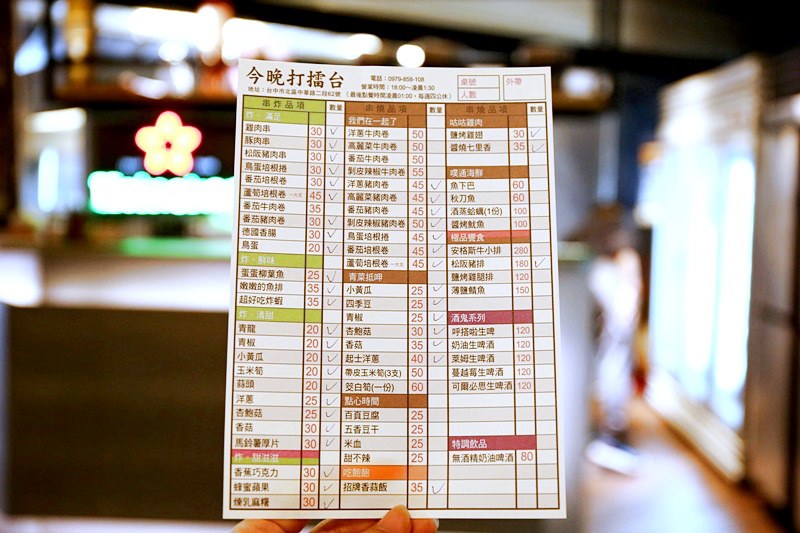 今晚打擂台
電話：0979-858-108
地址：台中市北區中華路二段62號
營業時間：18:00～凌晨1:30
(最後點餐時間凌晨01:00，每週四公休)
桌號
人數
外帶
串炸品項 數量
炸．滿足
雞肉串 30
豚肉串 30
松阪豬肉串 30
鳥蛋培根捲 30
番茄培根捲 30
蘆筍培根卷 45
番茄牛肉卷 35
番茄豬肉卷 30
德國香腸 30
鳥蛋 20
炸．鮮味
蛋蛋柳葉魚 25
嫩嫩的魚排 35
超好吃炸蝦 35
炸．清甜
青龍 20
青椒 20
小黃瓜 20
玉米筍 20
蒜頭 20
洋蔥 25
杏鮑菇 25
香菇 30
馬鈴薯厚片 30
炸．甜滋滋
香蕉巧克力 30
蜂蜜蘋果 30
煉乳麻糬 30
串燒品項 數量
我們在一起了
洋蔥牛肉卷 50
高麗菜牛肉卷 50
番茄牛肉卷 50
剝皮辣椒牛肉卷 55
洋蔥豬肉卷 45
高麗菜豬肉卷 45
番茄豬肉卷 45
剝皮辣椒豬肉卷 50
鳥蛋培根捲 45
番茄培根卷 45
蘆筍培根卷 45
青菜抵呷
小黃瓜 25
四季豆 25
青椒 25
杏鮑菇 30
香菇 35
起士洋蔥 40
帶皮玉米筍(3支) 50
茭白筍(一份) 60
點心時間
百頁豆腐 25
五香豆干 25
米血 25
甜不辣 25
吃飽飽
招牌香蒜飯 35
串燒品項 數量
咕咕雞肉
鹽烤雞翅 30
醬燒七里香 35
噗通海鮮
魚下巴 60
秋刀魚 60
酒蒸蛤蠣(1份) 100
醬烤魷魚 100
極品饗食
安格斯牛小排 280
松阪豬排 180
鹽烤雞腿排 120
薄鹽鯖魚 150
酒鬼系列
呼搭啦生啤 120
奶油生啤酒 120
萊姆生啤酒 120
蔓越莓生啤酒 120
可爾必思生啤酒 120
特調飲品
無酒精奶油啤酒 80